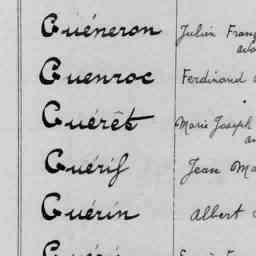 Guéneron Julien
Guenroc Ferdinand
Guérêt Marie Joseph
Guérif Jean
Guérin Albert